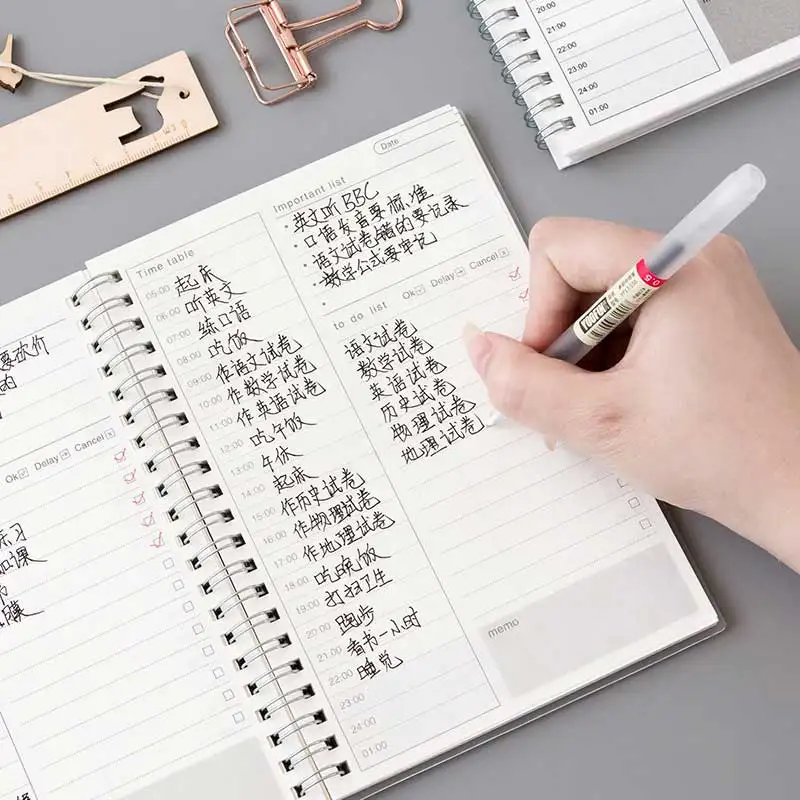 20:00
21:00
22:00
23:00
24:00
01:00
Date
Important list
· 英文听BBC
· 口语发音要标准
· 语文试卷错的要记录
· 数学公式要牢记
Time table
05:00 起床
06:00 听英文
07:00 练口语
08:00 吃饭
09:00 作语文试卷
10:00 作数学试卷
11:00 作英语试卷
12:00 吃午饭
13:00 午休
14:00 起床
15:00 作历史试卷
16:00 作物理试卷
17:00 作地理试卷
18:00 吃晚饭
19:00 打扫卫生
20:00 跑步
21:00 看书一小时
22:00 睡觉
23:00
24:00
01:00
to do list Ok Delay Cancel
语文试卷
数学试卷
英语试卷
历史试卷
物理试卷
地理试卷
memo
要砍价
Ok Delay Cancel
习
课
0.5